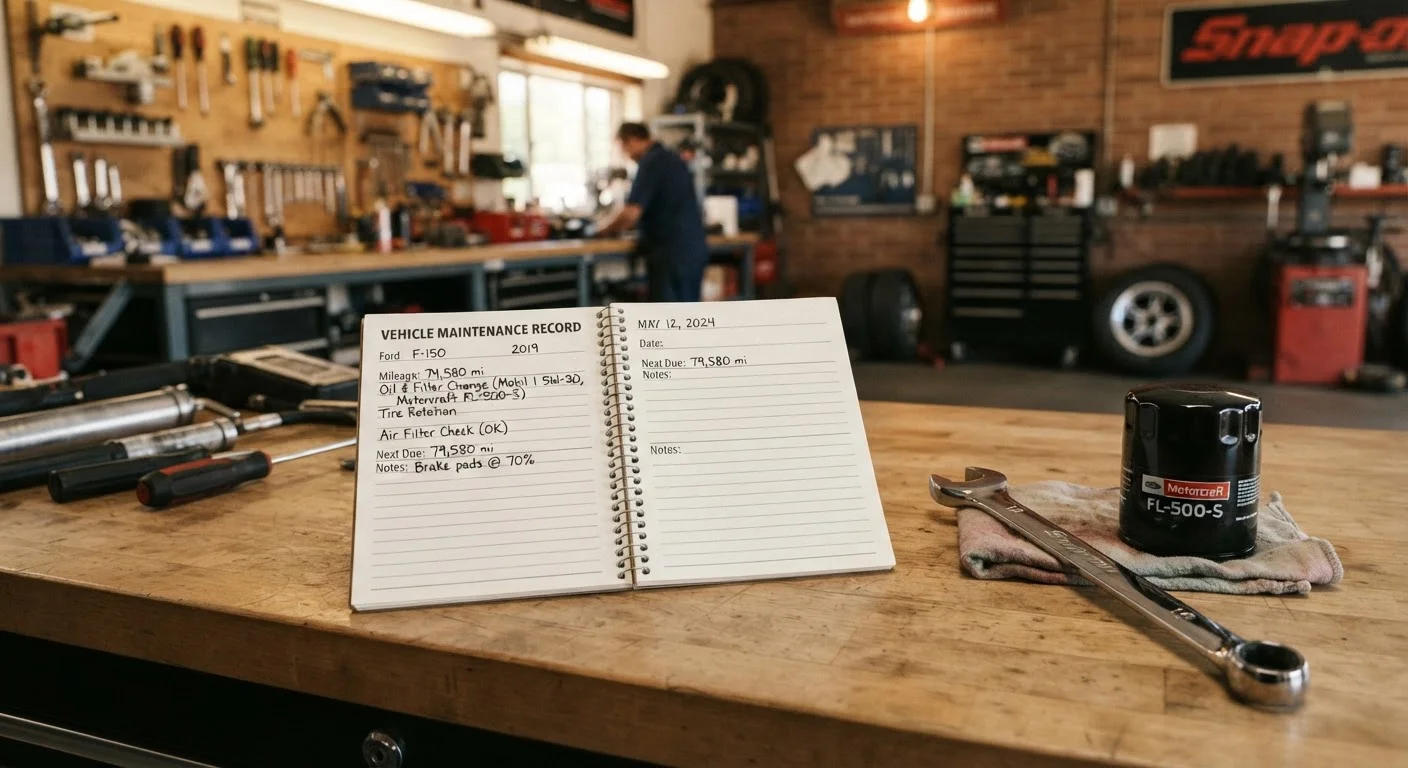 Snap-o
VEHICLE MAINTENANCE RECORD
Ford F-150 2019
Mileage: 74,580 mi
Oil & Filter Change (Mobil 1 5W-30,
Motorcraft FL-500-S)
Tire
Air Filter Check (OK)
Next Due: 79,580 mi
Notes: Brake pads @ 70%
MAY 12, 2024
Date:
Next Due: 79,580 mi
Notes:
Notes:
MotorcraR
FL-500-S